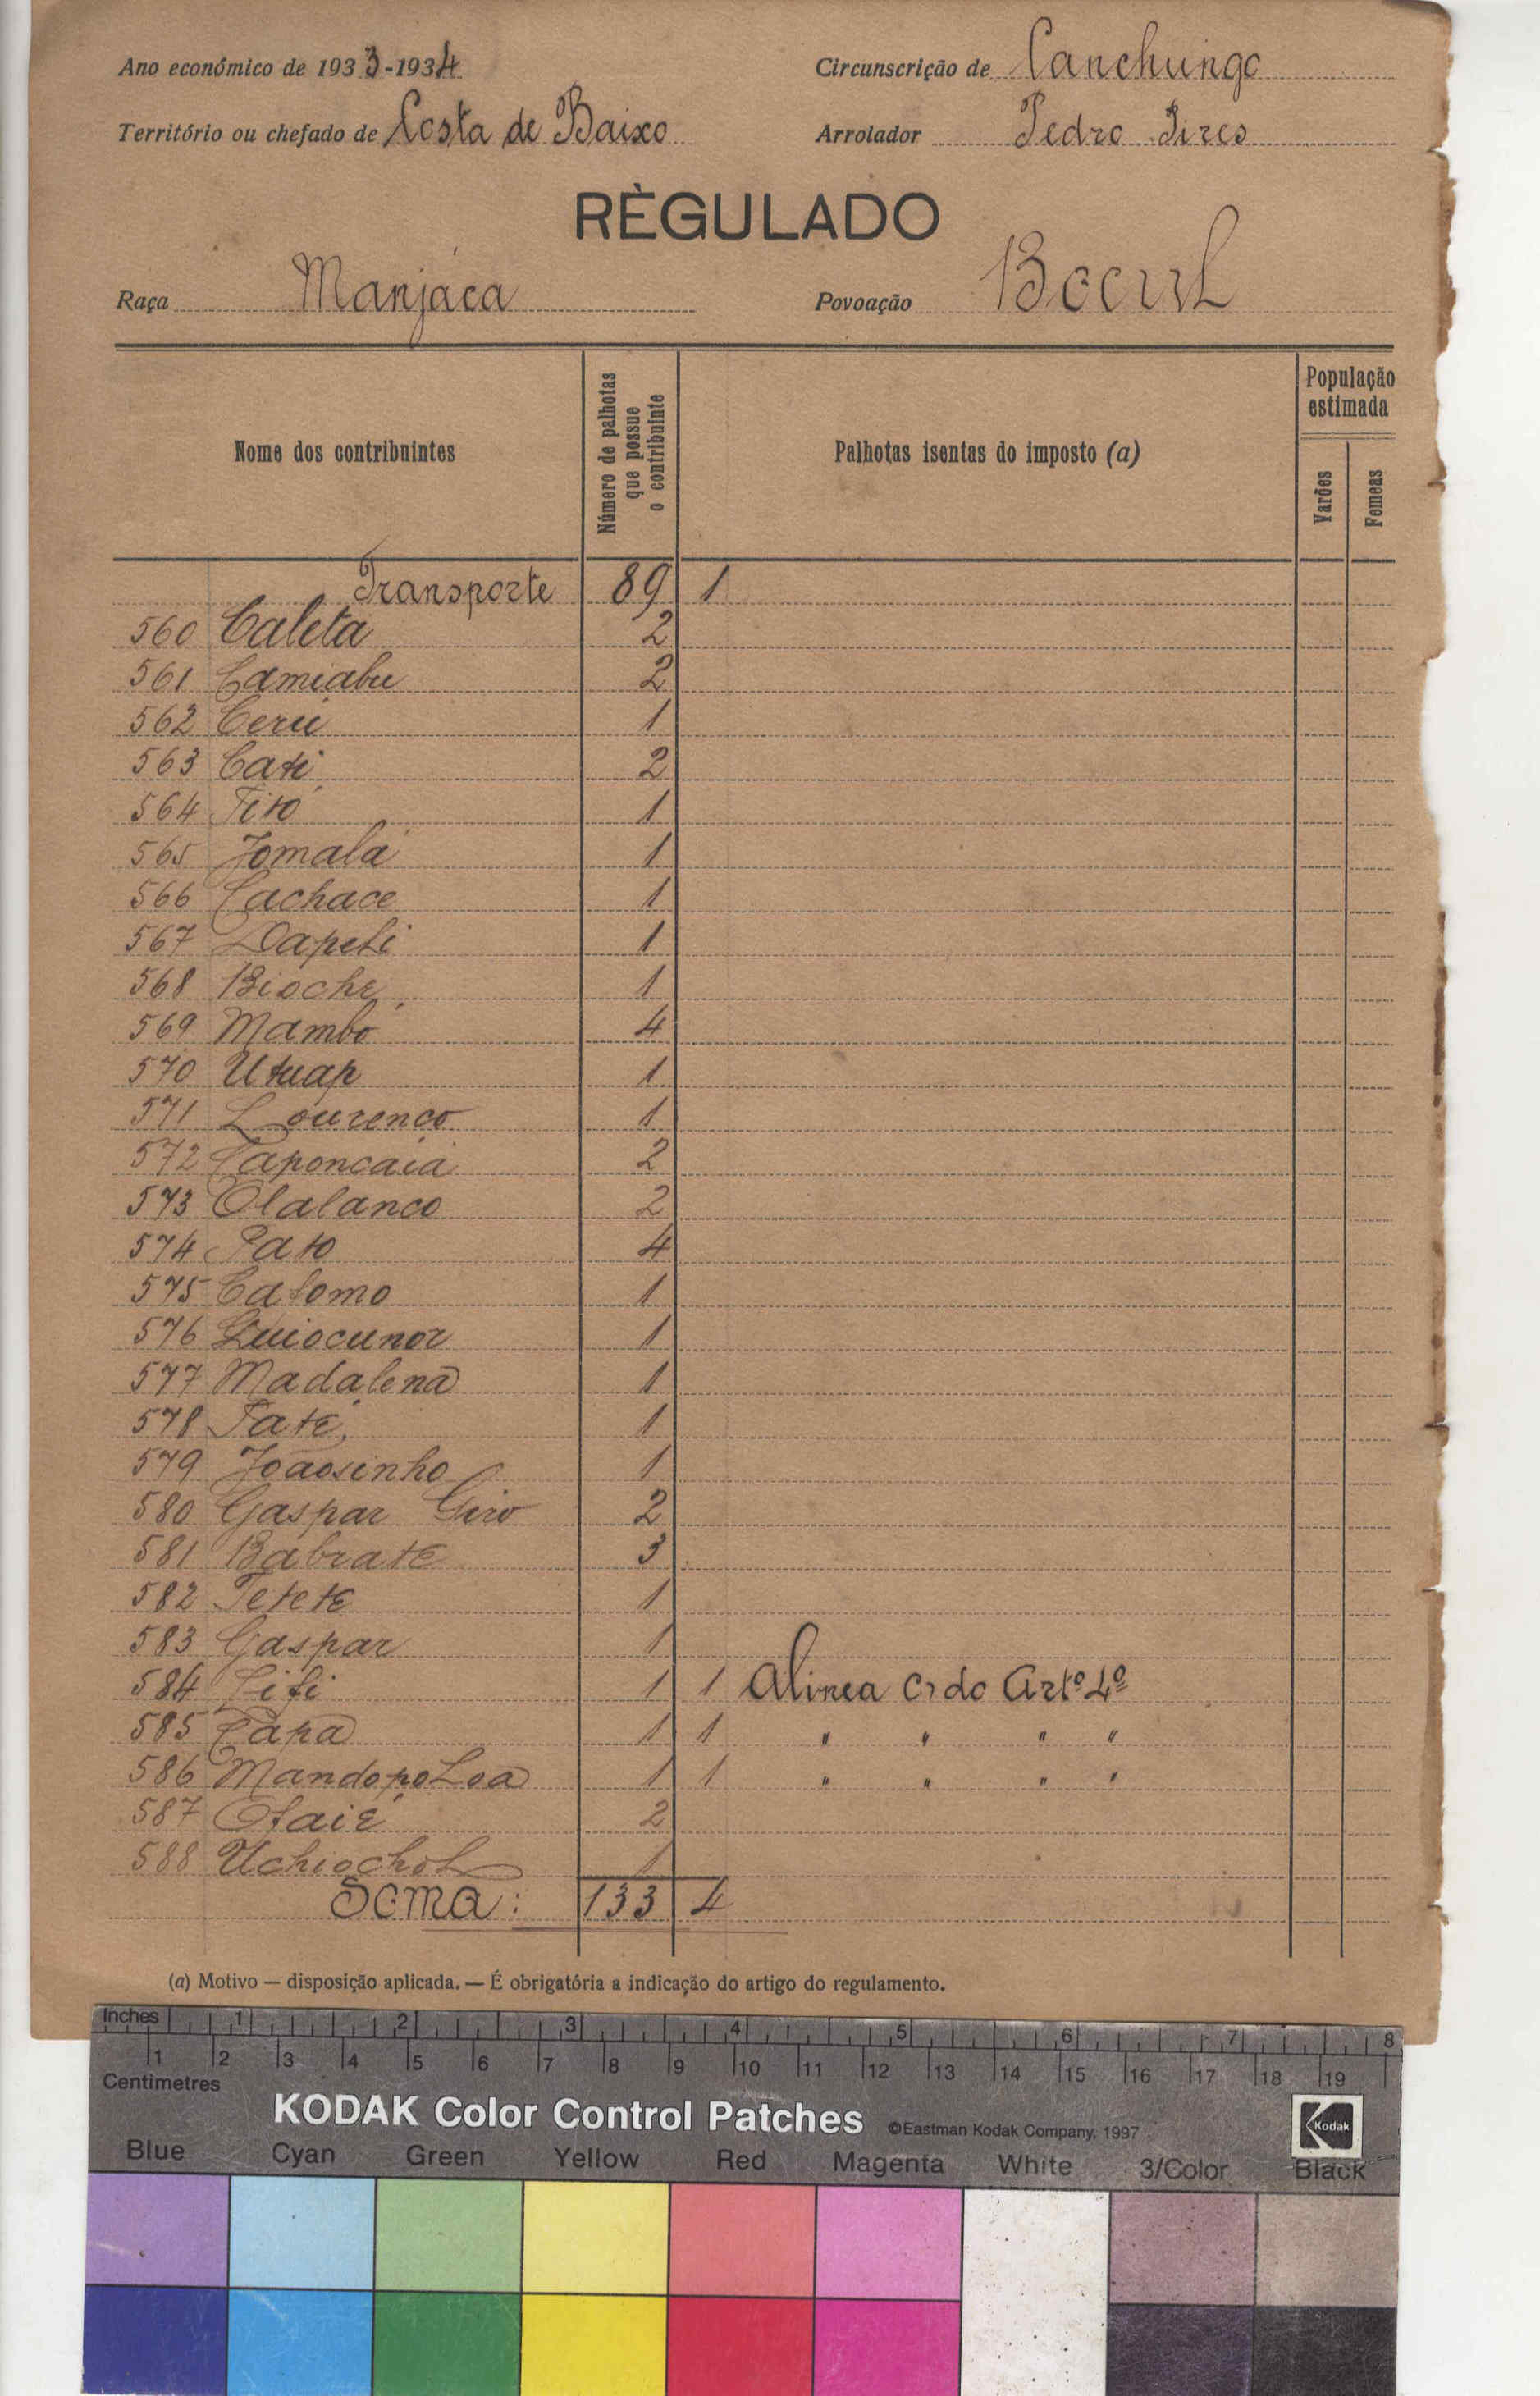 Ano económico de 1933-1934
Circunscrição de Canchungo
Território ou chefado de Costa de Baixo
Arrolador Pedro Pires
RÈGULADO
Raça Manjaca
Povoação Bocul
Nome dos contribuintes
Número de palhotas que possue o contribuinte
Palhotas isentas do imposto (a)
População estimada
Varões
Femeas
Transporte 89 1
560 Caleta 2
561 Camiabu 2
562 Cerú 1
563 Cati 2
564 Titó 1
565 Jomalá 1
566 Cachace 1
567 Dapeli 1
568 Bioche 1
569 Mambó 4
570 Utuap 1
571 Lourenco 1
572 Caponcaiá 2
573 Olalanco 2
574 Pato 4
575 Calomo 1
576 Quiocunor 1
577 Madalena 1
578 Taté 1
579 Joaosinho 1
580 Gaspar Giro 2
581 Babrate 3
582 Tetete 1
583 Gaspar 1
584 1 1 Alinea c) do Artº 4º
585 Capa 1 1 " " " "
586 Mandopo Loa 1 1 " " " "
587 Ofaié 2
588 Uchiochol 1
Soma: 133 4
(a) Motivo — disposição aplicada. — É obrigatória a indicação do artigo do regulamento.
Inches 1 2 3 4 5 6 7 8
1 2 3 4 5 6 7 8 9 10 11 12 13 14 15 16 17 18 19
Centimetres
KODAK Color Control Patches ©Eastman Kodak Company, 1997 Kodak
Blue Cyan Green Yellow Red Magenta White 3/Color Black